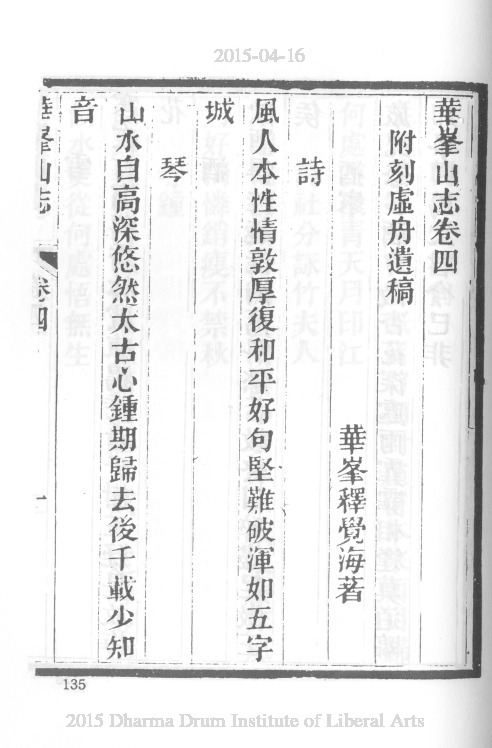 2015-04-16
華峯山志卷四
附刻虛舟遺稿
華峯釋覺海著
詩
風人本性情敦厚復和平好句堅難破渾如五字
城
琴
山水自高深悠然太古心鍾期歸去後千載少知
音
華峯山志 卷四 一
135
2015 Dharma Drum Institute of Liberal Arts